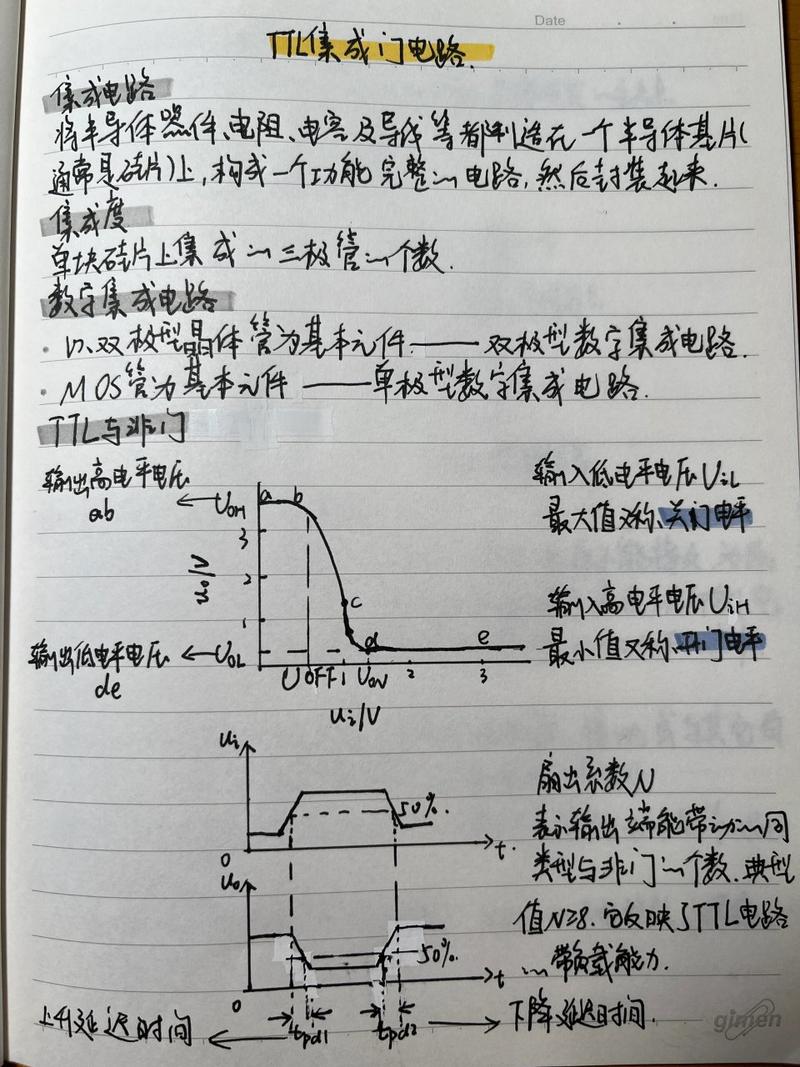 Date
TTL集成门电路.
集成电路
将半导体器件、电阻、电容及导线等都制造在一个半导体基片(
通常是硅片)上,构成一个功能完整的电路,然后封装起来.
集成度
单块硅片上集成的三极管的个数.
数字集成电路
· 以双极型晶体管为基本元件.——双极型数字集成电路.
· MOS管为基本元件——单极型数字集成电路.
TTL与非门
输出高电平电压
ab
←UOH
a b
3
2
1
uo/V
c
d
e
输出低电平电压
de
←UOL
UOFF 1 UON 2 3
ui/V
输入低电平电压UiL
最大值又称、关门电平
输入高电平电压UiH
最小值又称、开门电平
ui
50%.
0
t.
uo
50%.
0
t
扇出系数N
表示输出端能带动的同
类型与非门的个数.典型
值N≥8.它反映了TTL电路
的带负载能力.
上升延迟时间
tpd1
tpd2
下降延迟时间.
gimen